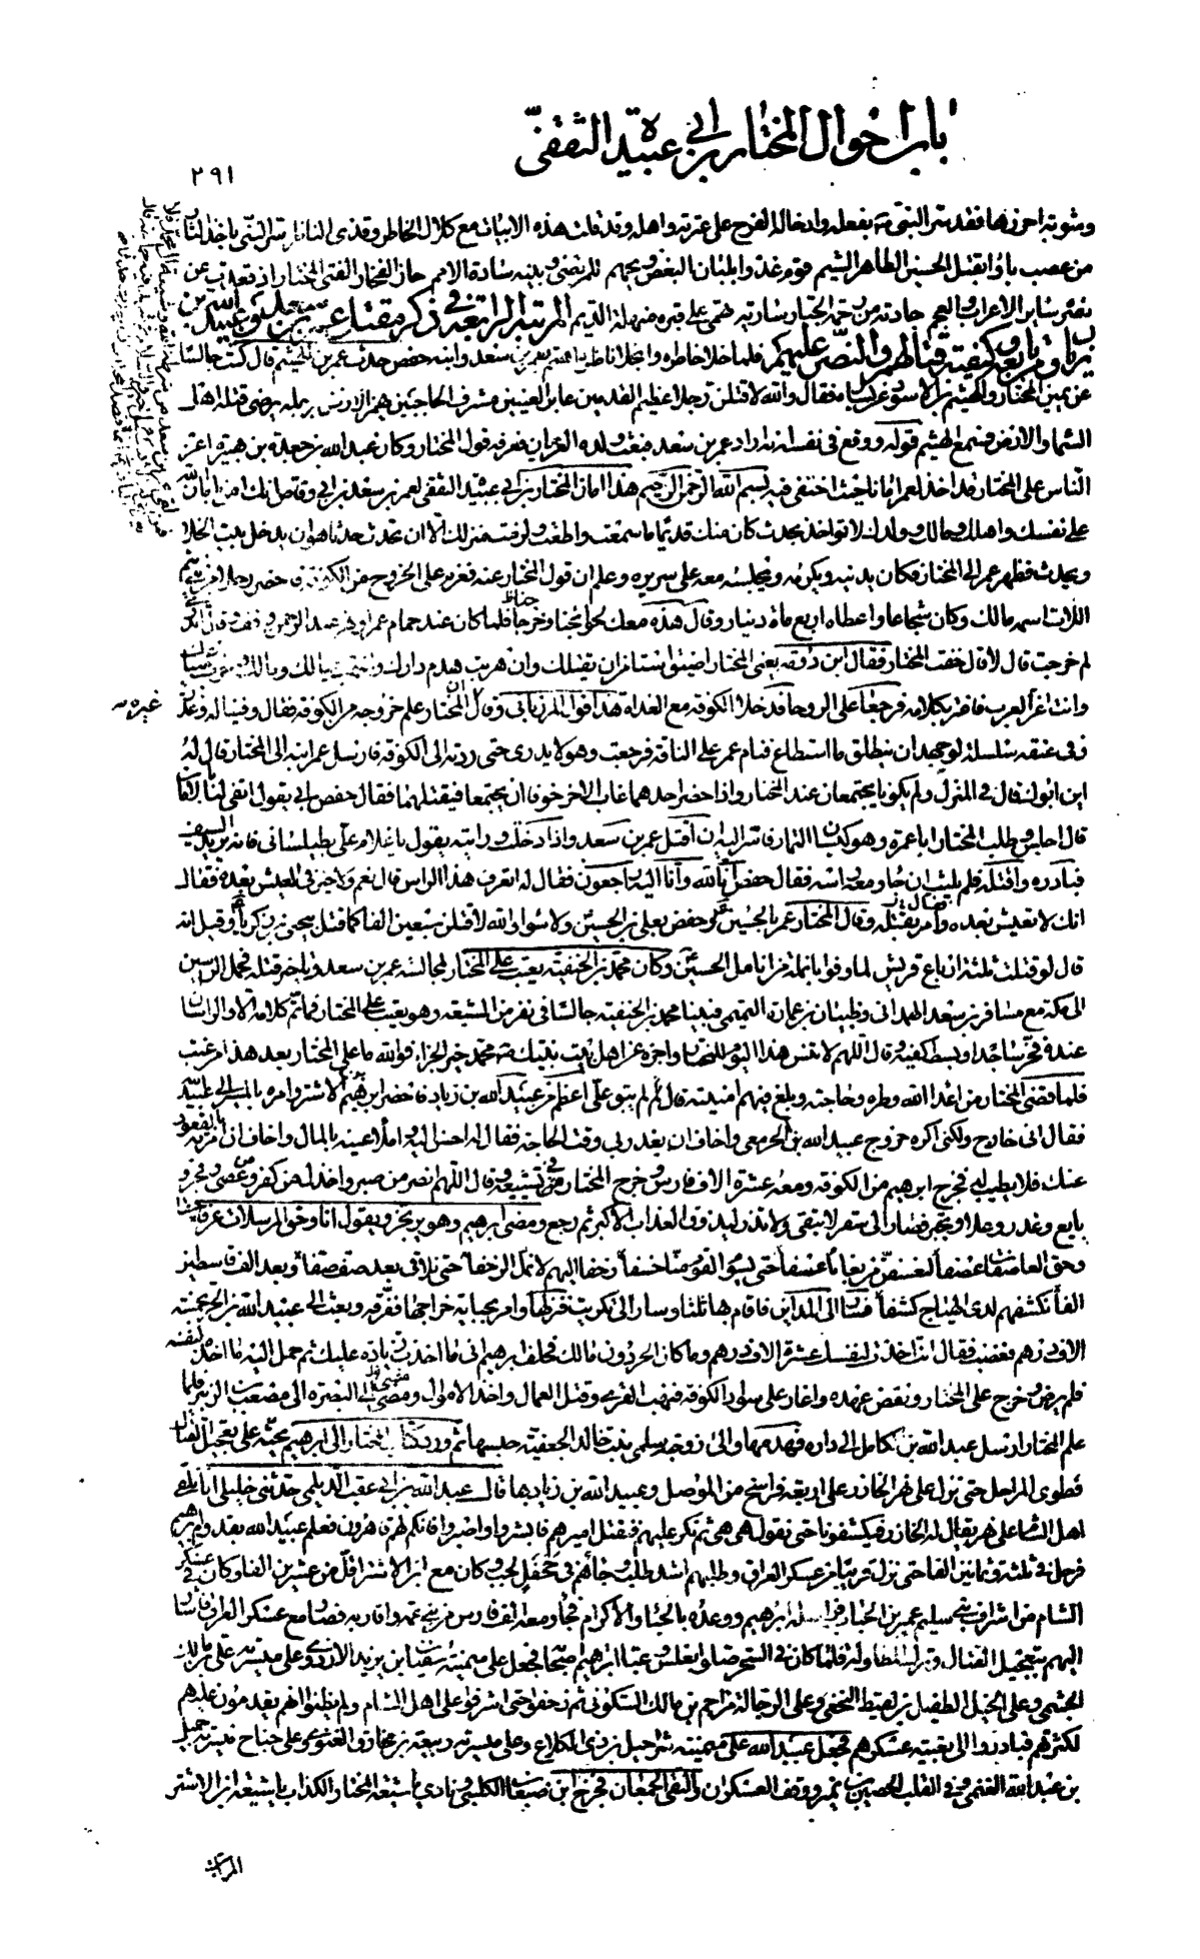 باب احوال المختار بن ابي عبيدة الثقفي
٢٩١
ومثوبة احرزها فقد سر النبي ص بفعله وادخاله الفرح على عترته واهله وقد قلت هذه الابيات مع كلال الخاطر وقذى الناظر سر النبي باخذ الثار
من عصب باؤا بقتل الحسين الطاهر الشيم قوم غذوا بلبان البغض ويحهم للمرتضى وبنيه سادة الامم حاز الفخار الفتى المختار اذ قعدت عن
نصره سائر الاعراب والعجم جادته من رحمة الجبار سارية تهمى على قبره منهلة الديم المرتبة الرابعة في ذكر مقتل عمر بن سعد وعبيد الله بن
زياد ومن تابعه وكيفية قتالهم والنصر عليهم فلما خلا خاطره وانجلا ناظره اهتم بعمر بن سعد وابنه حفص حدث عمر بن الهيثم قال كنت جالسا
عن يمين المختار والهيثم بن الاسود عن يساره فقال والله لاقتلن رجلا عظيم القدمين غاير العينين مشرف الحاجبين يهمز الارض برجله يرضى قتله اهل
السماء والارض فسمع الهيثم قوله ووقع في نفسه انه اراد عمر بن سعد فبعث ولده العريان فعرفه قول المختار وكان عبد الله بن جعدة بن هبيرة اعز
الناس على المختار قد اخذ لعمر امانا حيث اختفى فيه بسم الله الرحمن الرحيم هذا امان المختار بن ابي عبيد الثقفي لعمر بن سعد بن ابي وقاص انك امن بامان الله
على نفسك واهلك ومالك وولدك لا تؤاخذ بحدث كان منك قديما ما سمعت واطعت ولزمت منزلك الا ان تحدث حدثا هو ان يدخل بيت الخلا
ويحدث فظهر عمر الى المختار فكان يدنيه ويكرمه ويجلسه معه على سريره وعلم ان قول المختار عنه فعزم على الخروج من الكوفة فاحضر رجلا من بني تيم
اللات اسمه مالك وكان شجاعا واعطاه اربع مائة دينار وقال هذه معك لحوائجنا وخرجا فلما كان عند حمام عمر او نهر عبد الرحمن وقف وقال اتدرى
لم خرجت قال لا قال خفت المختار فقال ابن دومة يعني المختار اضيق استا من ان يقتلك وان هربت هدم دارك وانتهب عيالك ومالك وخرب ضياعك
وانت اعز العرب فاغتر بكلامه فرجعا على الروحاء فدخلا الكوفة مع الغداة هذا قول المرزباني وقال غيره ان المختار علم خروجه من الكوفة فقال وفينا له وغدر
وفي عنقه سلسلة لو جهد ان ينطلق ما استطاع فنام عمر على الناقة فرجعت وهو لا يدرى حتى ردته الى الكوفة فارسل عمر ابنه الى المختار قال له
اين ابوك قال في المنزل ولم يكونا يجتمعان عند المختار واذا حضر احدهما غاب الاخر خوفا ان يجتمعا فيقتلهما فقال حفص ابي يقول اتفى لنا بالامان
قال اجلس وطلب المختار ابا عمرة وهو كيسان التمار فاسر اليه ان اقتل عمر بن سعد واذا دخلت ورايته يقول يا غلام على بطيلساني فانه يريد السيف
فبادره واقتله فلم يلبث ان جاء ومعه راسه فقال حفص انا لله وانا اليه راجعون فقال له اتعرف هذا الراس قال نعم ولا خير في العيش بعده فقال
انك لا تعيش بعده وامر بقتله وقال المختار عمر بالحسين وحفص بعلي بن الحسين ولا سواء والله لاقتلن سبعين الفا كما قتل بيحيى بن زكريا وقيل انه
قال لو قتلت ثلثة ارباع قريش لما وفوا بانملة من انامل الحسين وكان محمد بن الحنفية يعتب على المختار لمجالسة عمر بن سعد وتاخير قتله فحمل الراسين
الى مكة مع مسافر بن سعد الهمداني وظبيان بن عمارة التميمي فبينا محمد بن الحنفية جالسا في نفر من الشيعة وهو يعتب على المختار فما تم كلامه الا والراسان
عنده فخر ساجدا وبسط كفيه وقال اللهم لا تنس هذا اليوم للمختار واجزه عن اهل بيت نبيك محمد خير الجزاء فوالله ما على المختار بعد هذا من عتب
فلما قضى المختار من اعداء الله وطره وحاجته وبلغ فيهم امنيته قال لم يبق على اعظم من عبيد الله بن زياد فاحضر ابرهيم بن الاشتر وامره بالمسير الى عبيد الله
فقال اني خارج ولكني اكره خروج عبيد الله بن الحر معي واخاف ان يغدر بي وقت الحاجة فقال له احسن اليه واملاء عينه بالمال واخاف ان امرته بالقعود
عنك فلا يطيب له فخرج ابرهيم من الكوفة ومعه عشرة الاف فارس وخرج المختار في تشييعه وقال اللهم انصر من صبر واخذل من كفر ومن عصى وفجر و
بايع وغدر وعلا وتجبر فصار الى سقر لا تبقى ولا تذر ليذوق العذاب الاكبر ثم رجع ومضى ابرهيم وهو يرتجز ويقول انا وحق المرسلات عرفا
وحق العاصفات عصفا لنعسفن من بغانا عسفا حتى يسوء القوم منا خسفا زحفا اليهم لا نمل الزحفا حتى نلاقى بعد صف صفا وبعد الف قاسطين
الفا نكشفهم لدى الهياج كشفا فسار الى المداين فاقام بها ثلثا وسار الى تكريت فنزلها وامر بجباية خراجها ففرقه وبعث الى عبيد الله بن الحر بخمسة
الاف درهم فغضب فقال انت اخذت لنفسك عشرة الاف درهم وما كان الحر دون مالك فحلف ابرهيم اني ما اخذت زيادة عليك ثم حمل اليه ما اخذه لنفسه
فلم يرض وخرج على المختار ونقض عهده واغار على سواد الكوفة فنهب القرى وقتل العمال واخذ الاموال ومضى الى البصرة الى مصعب بن الزبير فلما
علم المختار ارسل عبد الله بن كامل الى داره فهدمها والى زوجته سلمى بنت خالد الجعفية حبسها ثم ورد كتاب المختار الى ابرهيم يحثه على تعجيل القتال
فطوى المراحل حتى نزل على نهر الخازر على اربعة فراسخ من الموصل وعبيد الله بن زياد بها قال عبد الله بن ابي عقب الديلمي حدثني خليلي انا نلقى
اهل الشام على نهر يقال له الخازر فيكشفونا حتى نقول هي هي ثم نكر عليهم فنقتل اميرهم فابشروا واصبروا فانكم لهم قاهرون فعلم عبيد الله بقدوم ابرهيم
فرحل في ثلثة وثمانين الفا حتى نزل قريبا من عسكر العراق وطلبهم اشد طلب وجاءهم في جحفل لجب وكان مع ابن الاشتر اقل من عشرين الفا وكان في عسكر
الشام من اشراف بني سليم عمير بن الحباب فراسله ابرهيم ووعده بالحباء والاكرام فجاء ومعه الف فارس من بني عمه واقاربه فصار مع عسكر العراق فاشار
اليهم بتعجيل القتال وترك المطاولة فلما كان في السحر صلوا بغلس وعبا ابرهيم اصحابه فجعل على ميمنته سفيان بن يزيد الازدي وعلى ميسرته على بن مالك
الجشمي وعلى الخيل الطفيل بن لقيط النخعي وعلى الرجالة مزاحم بن مالك السكوني ثم زحفوا حتى اشرفوا على اهل الشام ولم يظنوا انهم يقدمون عليهم
لكثرتهم فبادروا الى تعبية عسكرهم فجعل عبيد الله على ميمنته شراحيل بن ذي الكلاع وعلى ميسرته ربيعة بن مخارق الغنوي وعلى جناح ميسرته جميل
بن عبد الله الغنمي وفي القلب الحصين بن نمير ووقف العسكران والتقى الجمعان فخرج ابن ضبعان الكلبي ونادى يا شيعة المختار الكذاب يا شيعة ابن الاشتر
المرتاب